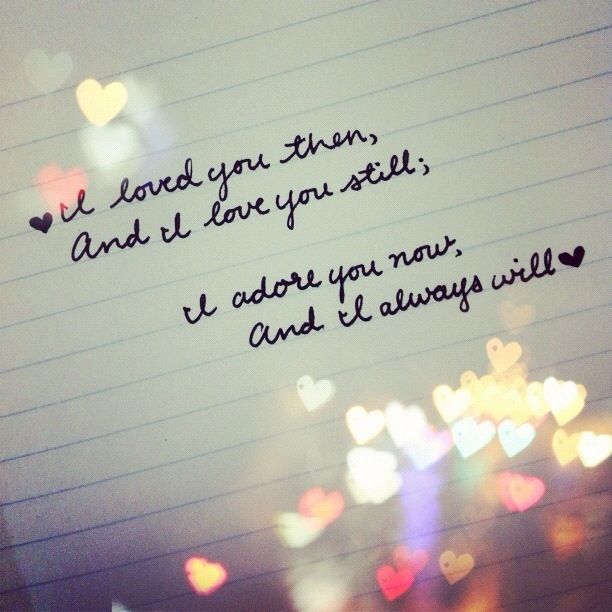 I loved you then,
And I love you still;
I adore you now,
And I always will